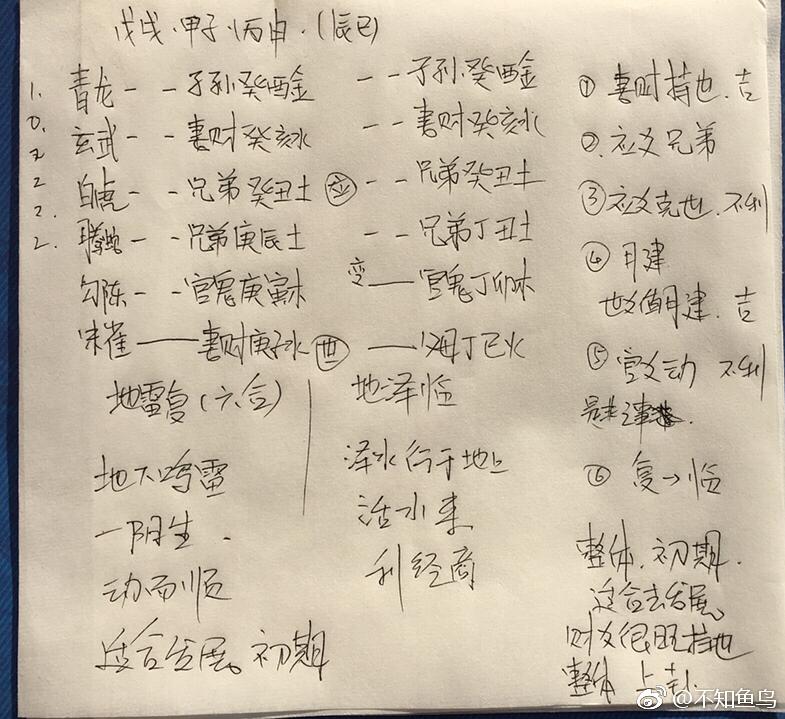 戊戌.甲子.丙申.(辰巳)
1. 青龙 -- 子孙癸酉金 -- 子孙癸酉金
0. 玄武 -- 妻财癸亥水 -- 妻财癸亥水
2 白虎 -- 兄弟癸丑土 应 -- 兄弟癸丑土
2. 腾蛇 -- 兄弟庚辰土 -- 兄弟丁丑土
2. 勾陈 -- 官鬼庚寅木 变 — 官鬼丁卯木
朱雀 — 妻财庚子水 世 — 父母丁巳火
地雷复(六合)
地下鸣雷
一阳生.
动而顺
适合发展。初期
地泽临
泽水行于地上
活水来
利经商
① 妻财持世.吉
②.应爻兄弟
③ 应爻克世.不利
④ 月建
世爻值月建.吉
⑤ 官爻动 不利
⑥ 复→临
整体.初期.
适合去发展。
财爻很旺持世
整体 上卦.
@不知鱼鸟